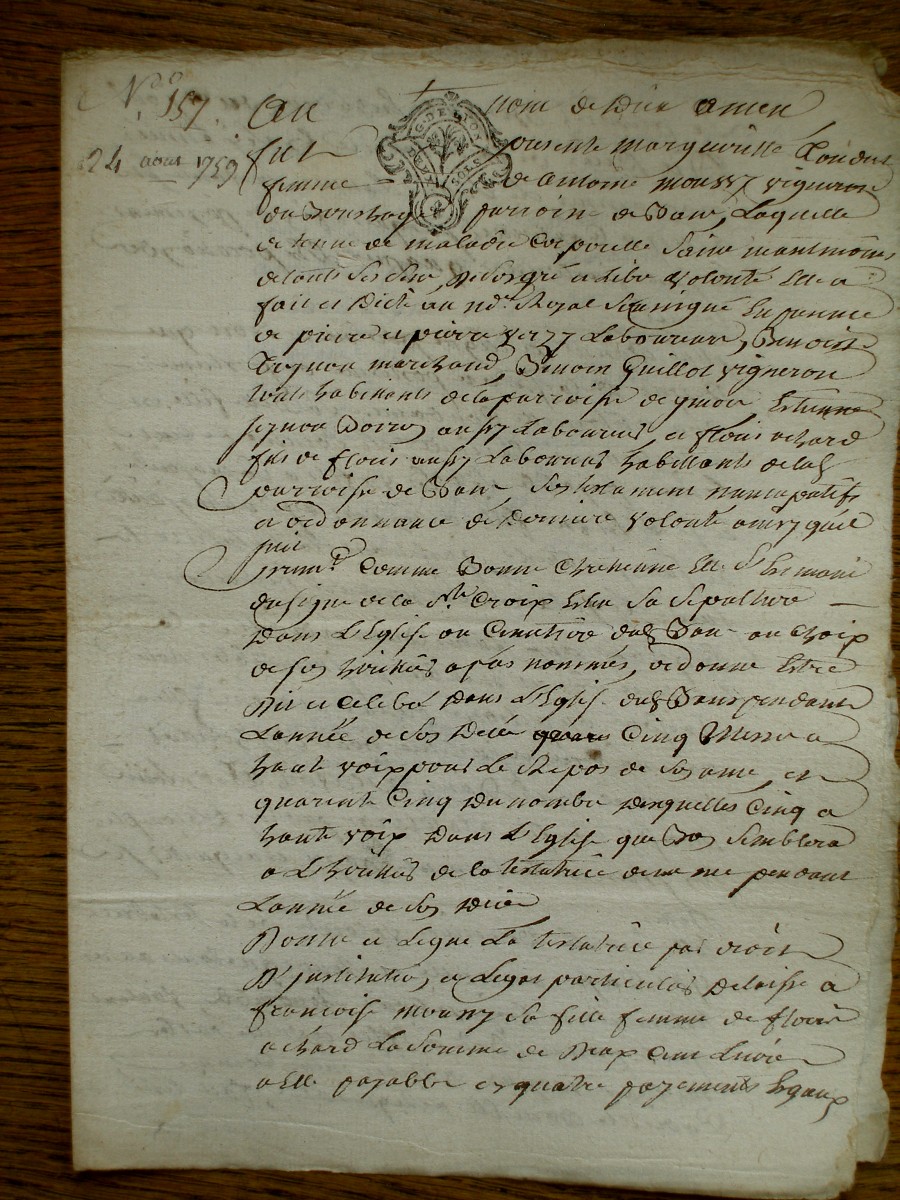 N.º 157.
24 aout 1759
Au nom de Dieu amen
G. DE LYON
SOLS
fut presente Margueritte
femme de Antoine Moussy vigneron
du parroisse de Laquelle
detenue de maladie Corporelle Saine neantmoins
de touts ses sens, de son gré et libre volonté Elle a
fait et dicté au no.re Royal Soussigné En presence
de pierre et pierre Laboureurs, Benoist
marchand, Simon Guillot vigneron
touts habittants de la parroisse de Estienne
aussy Laboureur, et fleurie achard
fils de fleurie aussy Laboureurs habittants de lad
parroisse de son testament nuncupatif
et ordonnance de derniere volonté ainsy quil
suit
prem.t Comme Bonne Chretienne Elle
du signe de la S.te Croix Eslu Sa Sepulture
dans L'Eglise ou Cimetiere dud au choix
de son heritier apres nommés, ordonne Estre
dit et celebré dans L'Eglise dud pendant
Lannée de son deces Cinq Messes a
haute voix pour Le Repos de son ame, et
quarente Cinq du nombre desquelles Cinq a
haute voix dans L'Eglise que Bon Semblera
a L'heritier de la testatrice de meme pendant
Lannée de son deces
Donne et Legue La testatrice par droit
D'institution et Legat particulier delaisse a
francoise Moussy sa fille femme de fleurie
achard La Somme de Deux Cent Livres
a Elle payable en quatre payements Egaux